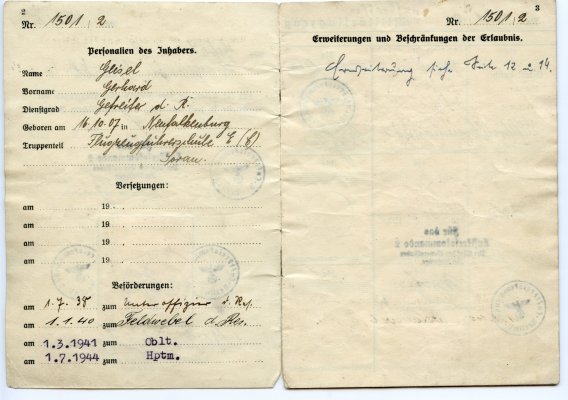 2
Nr. 1501/2
Personalien des Inhabers.
Name Geisel
Vorname Gerhard
Dienstgrad Gefreiter d. R.
Geboren am 16.10.07 in Neufalkenburg
Truppenteil Flugzeugführerschule E (C)
Sorau.
Versetzungen:
am 19
am 19
am 19
am 19
Beförderungen:
am 1.7.38 zum Unteroffizier d. Res.
am 1.1.40 zum Feldwebel d. Res.
am 1.3.1941 zum Oblt.
am 1.7.1944 zum Hptm.
3
Nr. 1501/2
Erweiterungen und Beschränkungen der Erlaubnis.
Erweiterung siehe Seite 12 u. 14.